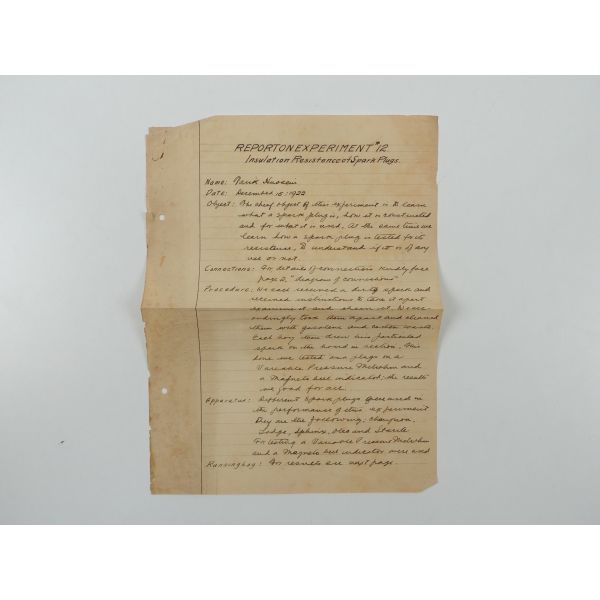 REPORT ON EXPERIMENT #12
Insulation Resistance of Spark Plugs.
Name: Hussein
Date: December 15: 1922
Object: The cheaf object of this experiment is to learn
what a spark plug is, how it is constructed
and for what it is used. At the same time we
learn how a spark plug is tested for its
resistance, to understand if it is of any
use or not.
Connections: For details of connection kindly face
page 2, "diagram of connessions"
Procedure: We each received a dirty spark and
received instructions to take it apart
examine it and clean it. We acc
ordingly took them apart and cleaned
them with gasolene and carbon waste.
Each boy then drew his particular
spark on the board in section. This
done we tested our plugs on a
Variable Pressure Mehohm and
a Magneto belt indicator; the results
we good for all.
Apparatus: Different Spark plugs were used in
the performance of this experiment
They are the following: Champion,
Lodge, Sphinx, Oleo and
For testing a Variable Pressure Mehohm
and a Magneto belt indicator were used
Running Log: For results see next page.